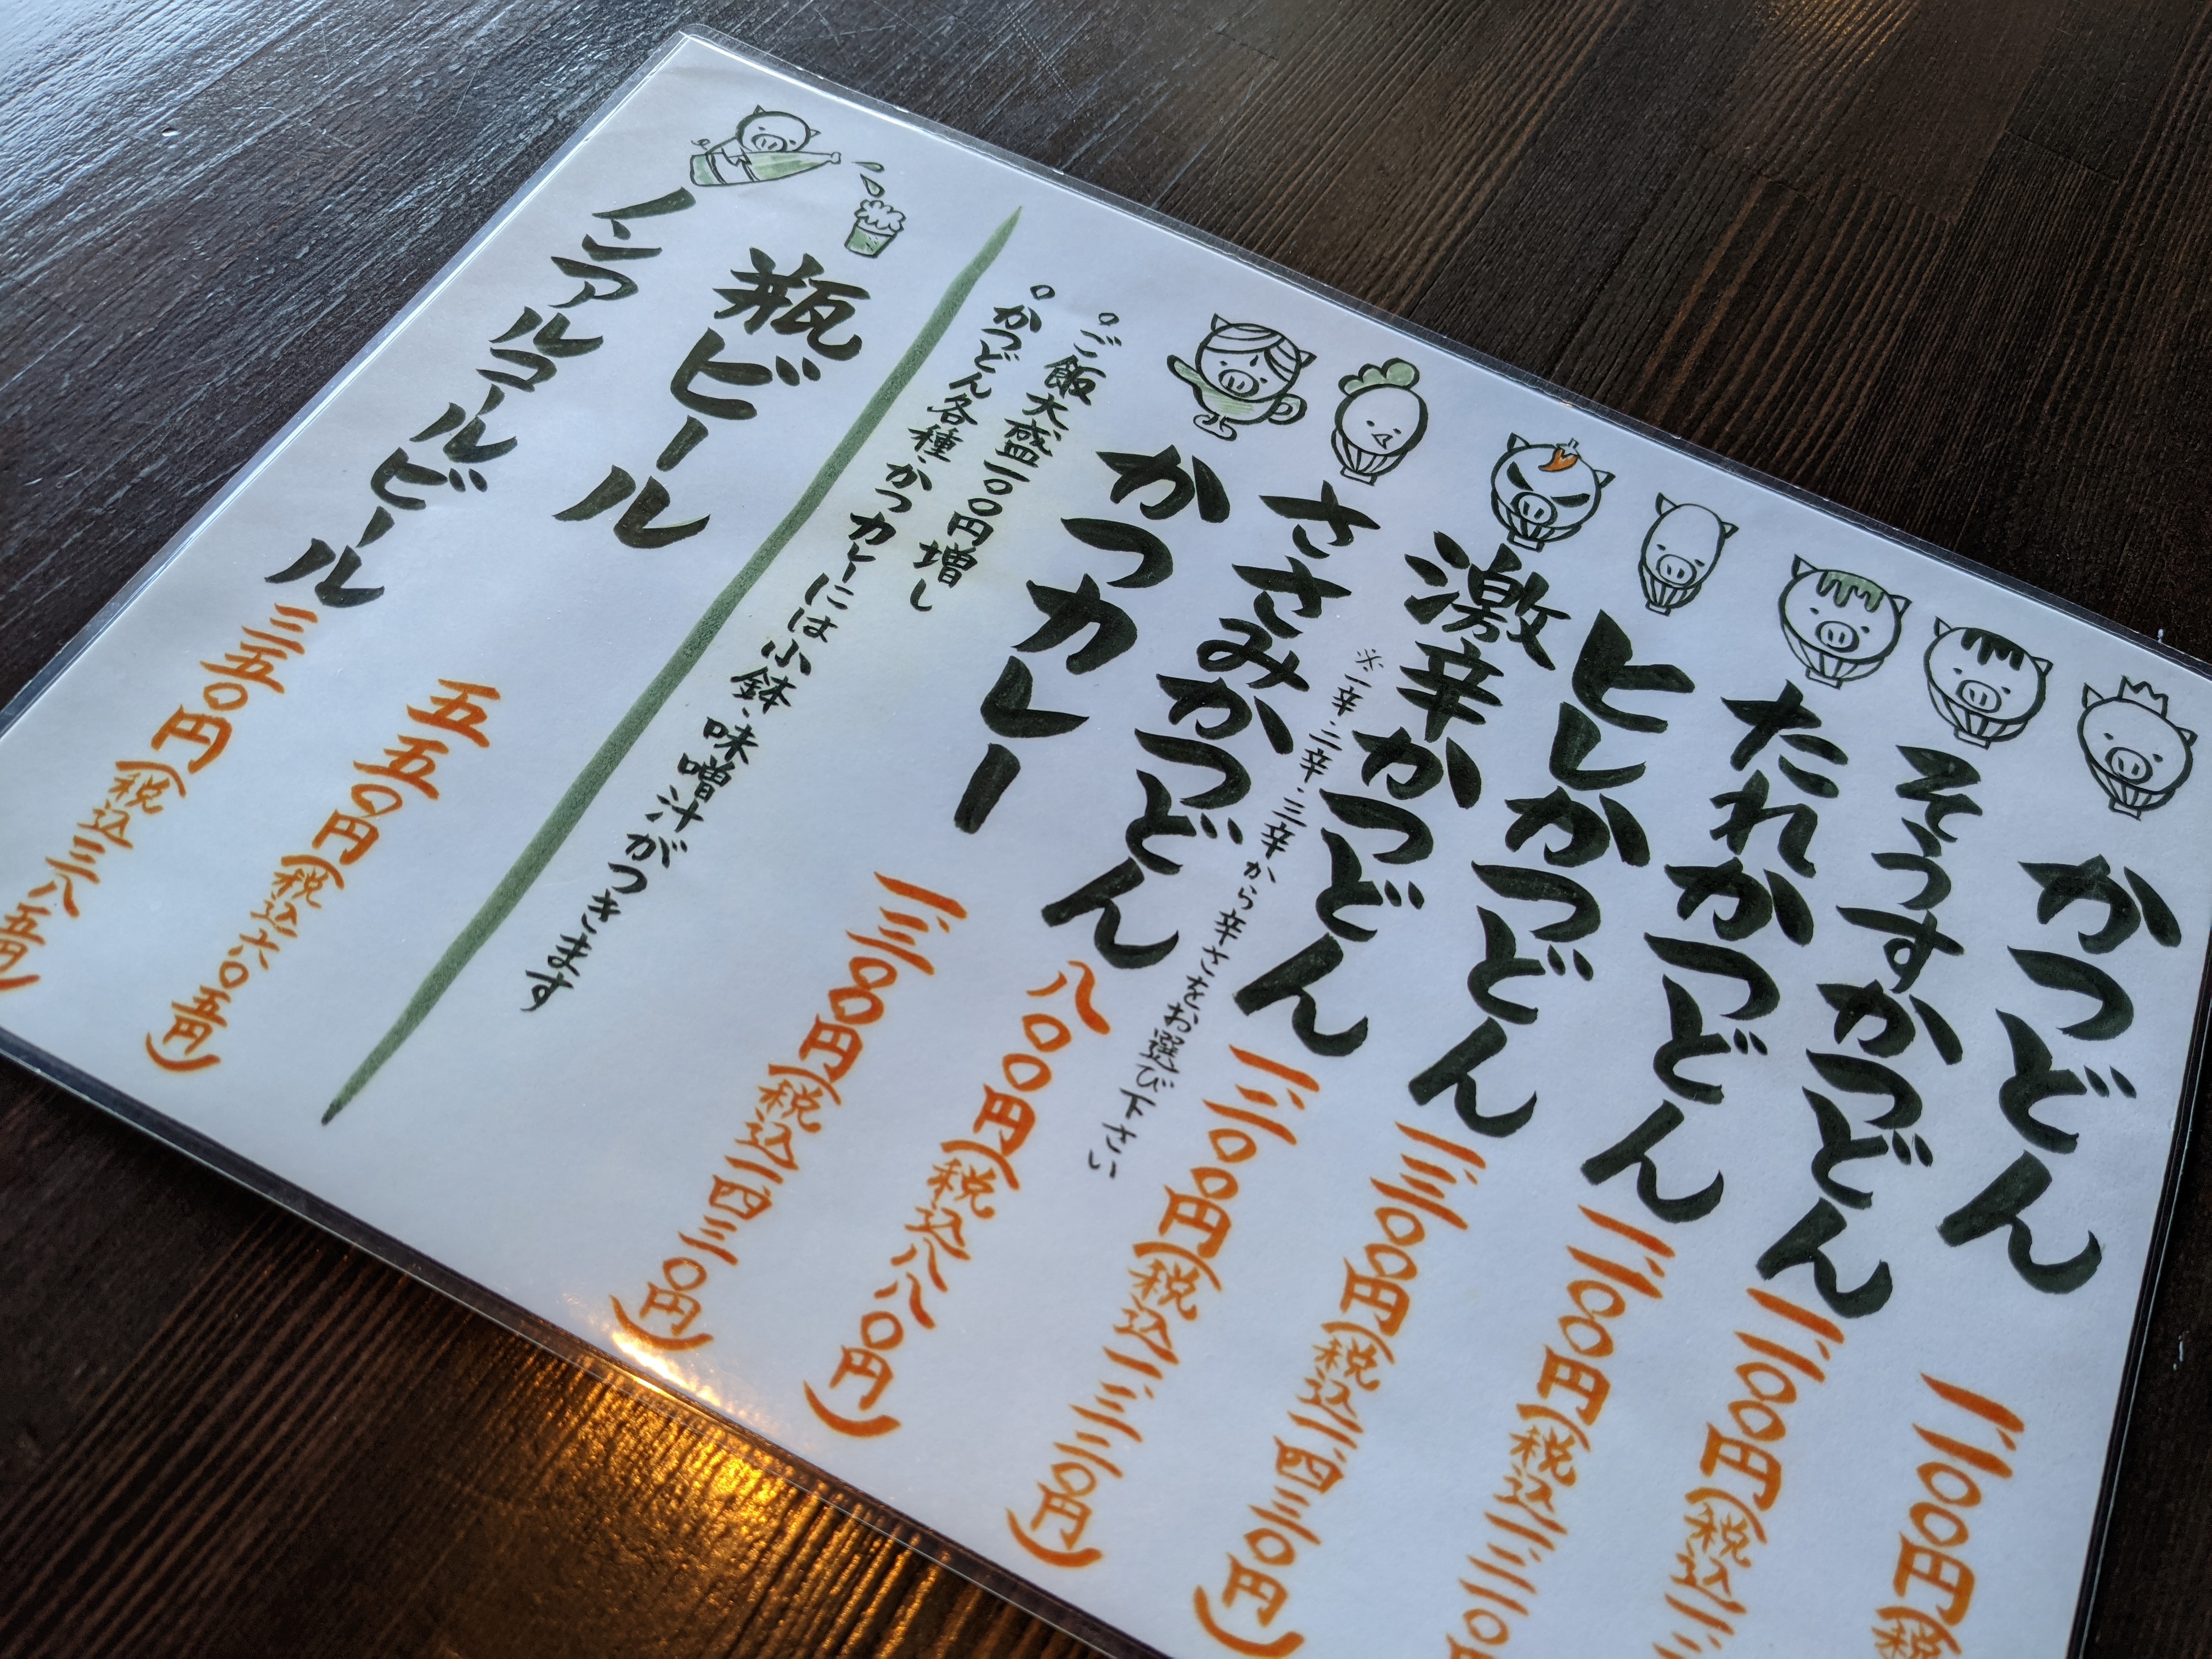 かつどん 一、一〇〇円(税
そうすかつどん 一、一〇〇円(税込一、二
たれかつどん 一、一〇〇円(税込一、二一〇円
ヒレかつどん 一、三〇〇円(税込一、四三〇円)
激辛かつどん 一、二〇〇円(税込一、三二〇円)
※一辛・二辛・三辛から辛さをお選び下さい
ささみかつどん 八〇〇円(税込八八〇円)
かつカレー 一、三〇〇円(税込一四三〇円)
。ご飯大盛一〇〇円増し
。かつどん各種・かつカレーには小鉢・味噌汁がつきます
瓶ビール 五五〇円(税込六〇五円)
ノンアルコールビール 三五〇円(税込三八五円)